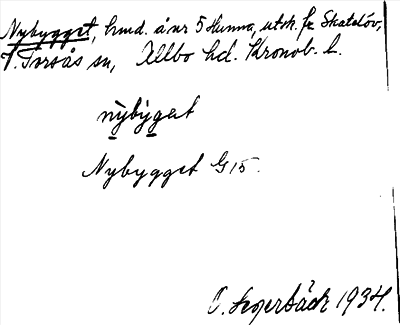 Nybygget, hmd. å nr 5 Hunna, utsk. fr. Skatelöv,
V. Torsås sn, Allbo hd. Kronob. l.
nỳbýgat
Nybygget G15.
O. Segerbäck 1934.